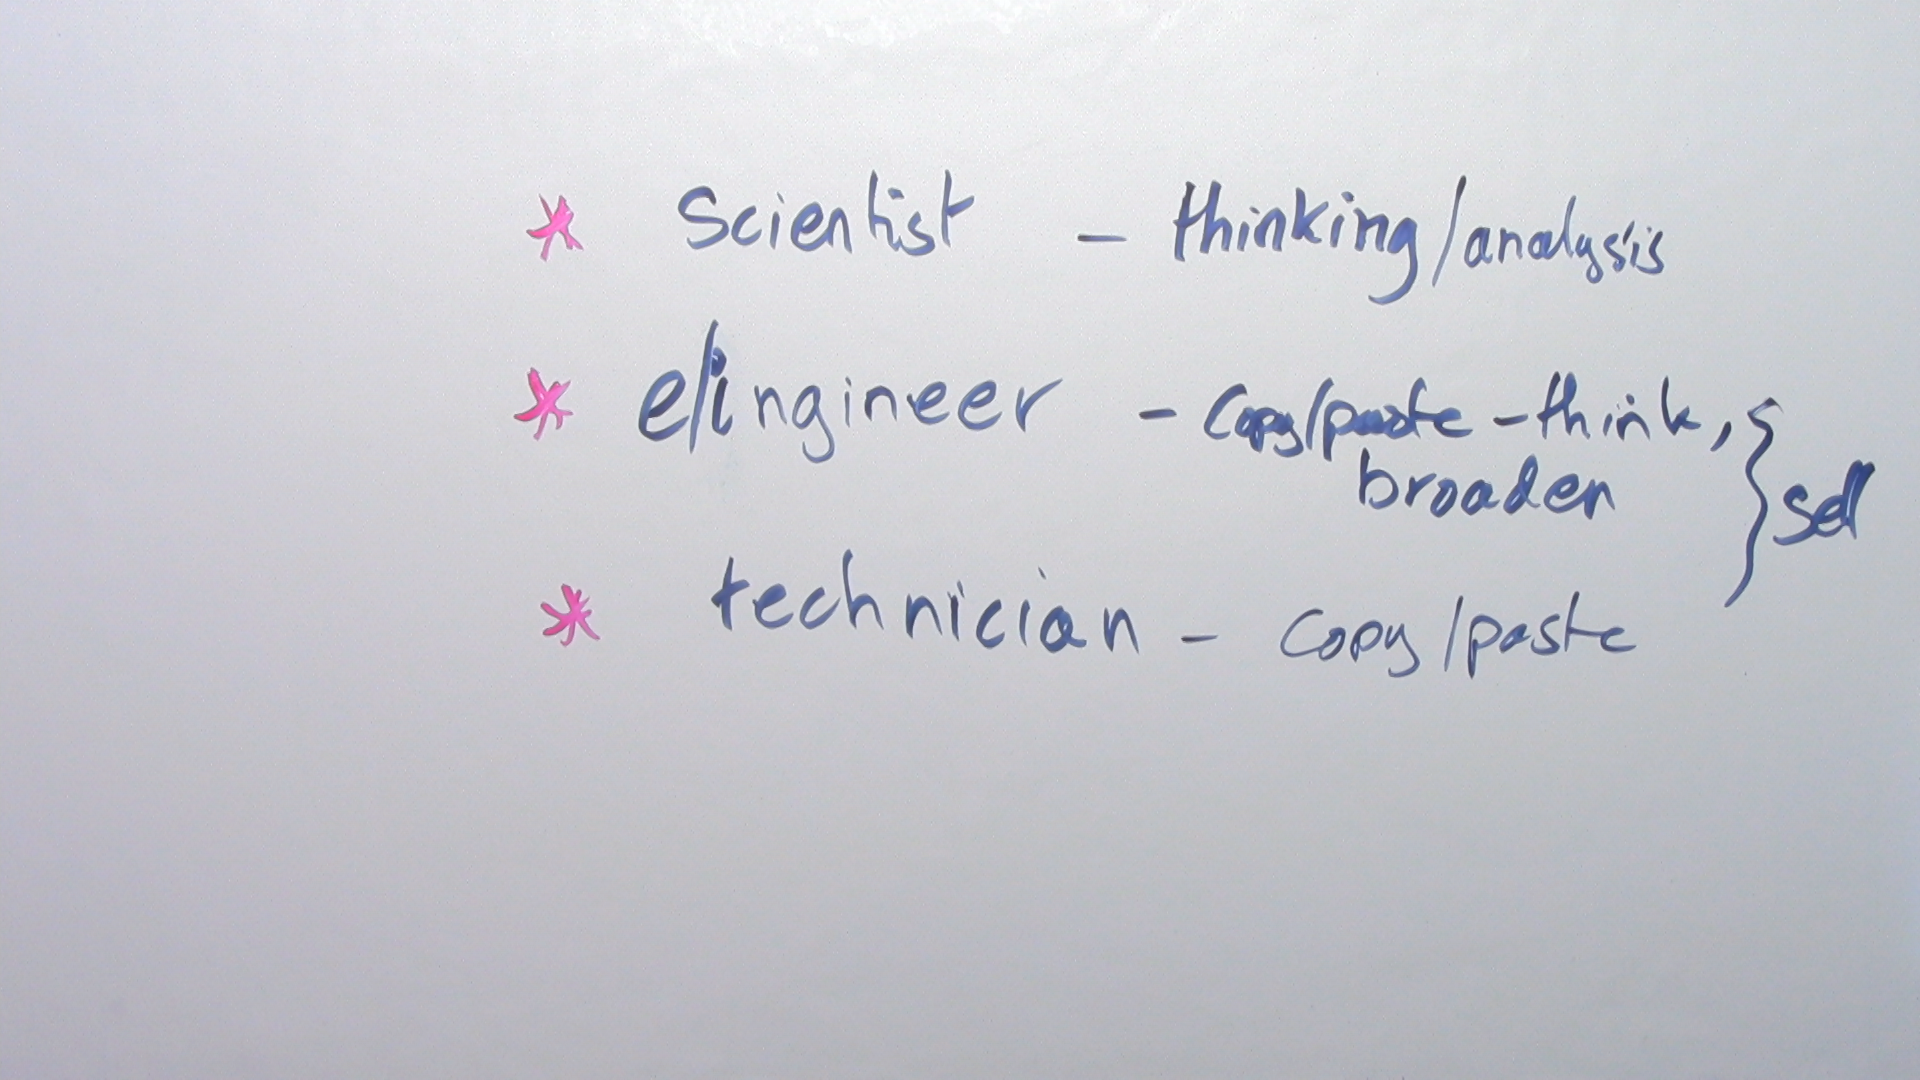 * Scientist - thinking/analysis
* e/ingineer - copy/paste - think,
broaden } sell
* technician - copy/paste